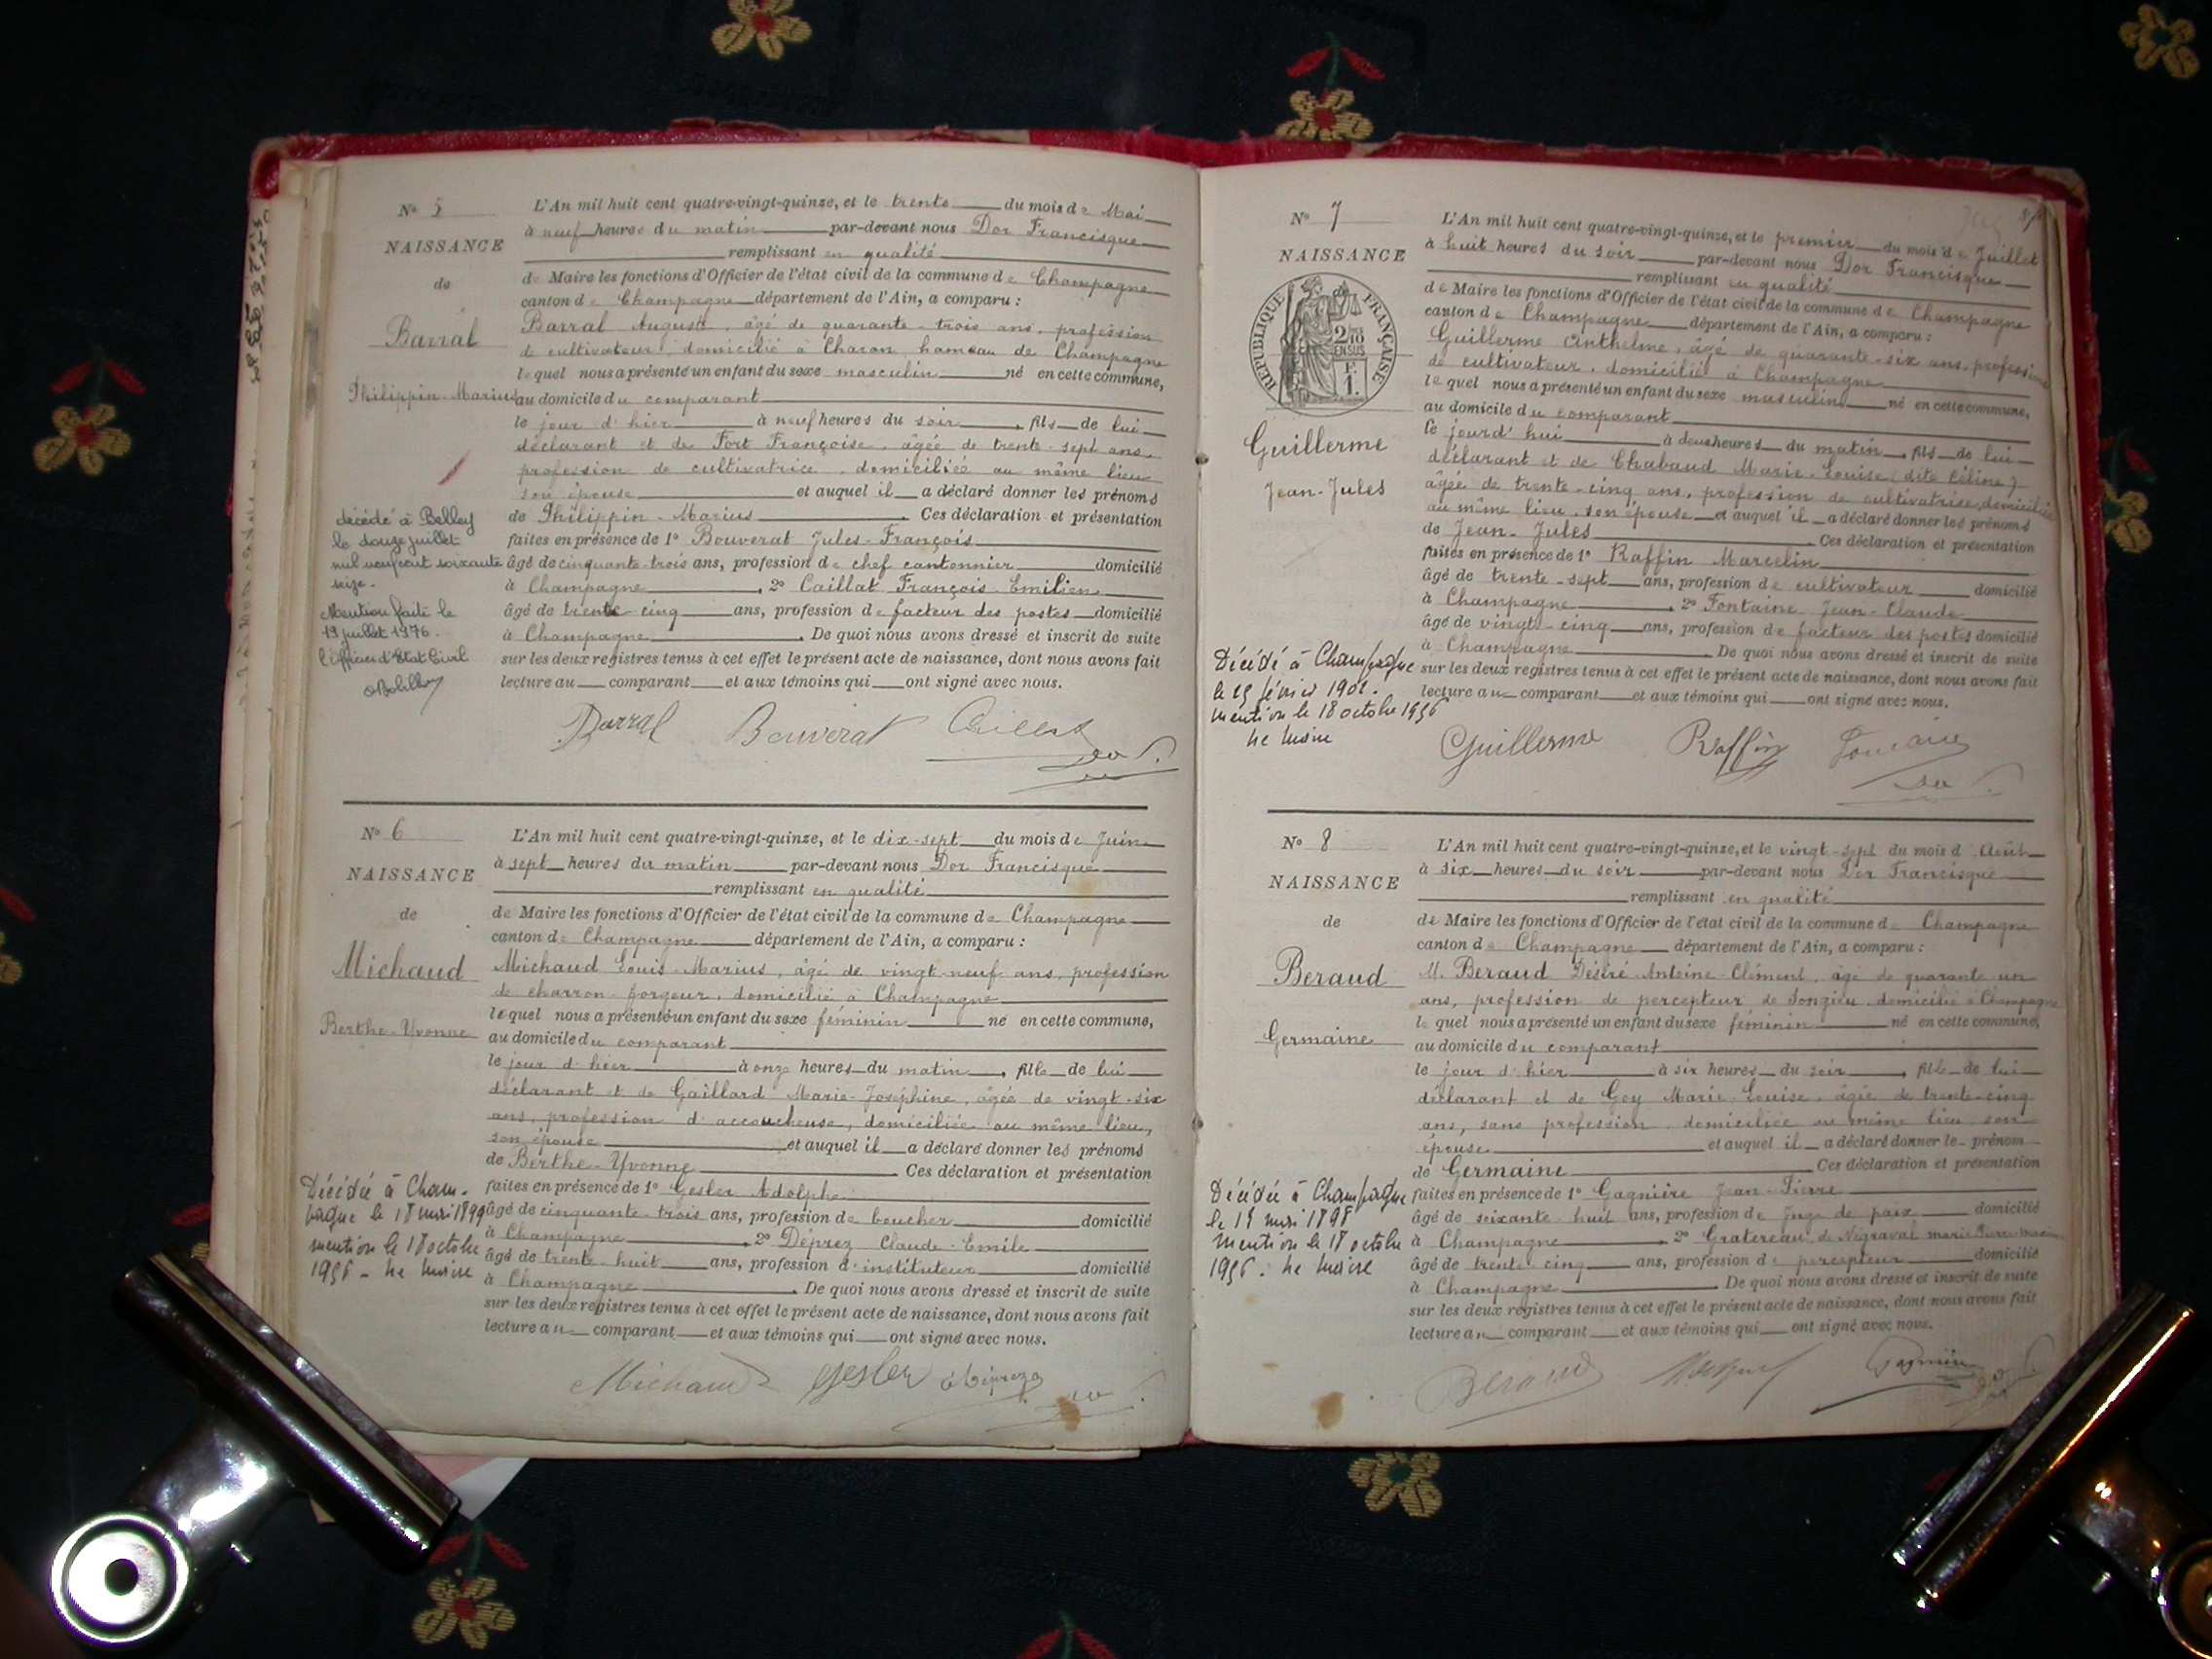 N° 5
NAISSANCE
de
Barral
Philippin-Marius
décédé à Belley
le douze juillet
mil neuf cent soixante
seize.
Mention faite le
19 juillet 1976.
l'Officier d'Etat Civil
L'An mil huit cent quatre-vingt-quinze, et le trente du mois de Mai
à neuf heures du matin par-devant nous Dor Francisque
remplissant en qualité
de Maire les fonctions d'Officier de l'état civil de la commune de Champagne
canton de Champagne département de l'Ain, a comparu :
Barral Auguste, âgé de quarante-trois ans, profession
de cultivateur, domicilié à Charon hameau de Champagne
lequel nous a présenté un enfant du sexe masculin né en cette commune,
au domicile du comparant
le jour d'hier à neuf heures du soir, fils de lui
déclarant et de Fort Françoise, âgée de trente-sept ans,
profession de cultivatrice, domiciliée au même lieu
son épouse et auquel il a déclaré donner les prénoms
de Philippin-Marius. Ces déclaration et présentation
faites en présence de 1° Bouverat Jules-François
âgé de cinquante-trois ans, profession de chef cantonnier domicilié
à Champagne, 2° Caillat François-Emilien
âgé de trente-cinq ans, profession de facteur des postes domicilié
à Champagne. De quoi nous avons dressé et inscrit de suite
sur les deux registres tenus à cet effet le présent acte de naissance, dont nous avons fait
lecture au comparant et aux témoins qui ont signé avec nous.
Barral Bouverat Caillat
Dor
N° 6
NAISSANCE
de
Michaud
Berthe-Yvonne
Décédée à Cham-
pagne le 18 mai 1899
mention le 18 octobre
1956 - Le Maire
L'An mil huit cent quatre-vingt-quinze, et le dix-sept du mois de Juin
à sept heures du matin par-devant nous Dor Francisque
remplissant en qualité
de Maire les fonctions d'Officier de l'état civil de la commune de Champagne
canton de Champagne département de l'Ain, a comparu :
Michaud Louis-Marius, âgé de vingt-neuf ans, profession
de charron-forgeur, domicilié à Champagne
lequel nous a présenté un enfant du sexe féminin né en cette commune,
au domicile du comparant
le jour d'hier à onze heures du matin, fille de lui
déclarant et de Gaillard Marie-Joséphine, âgée de vingt-six
ans, profession d'accoucheuse, domiciliée au même lieu,
son épouse et auquel il a déclaré donner les prénoms
de Berthe-Yvonne. Ces déclaration et présentation
faites en présence de 1° Gesler Adolphe
âgé de cinquante-trois ans, profession de boucher domicilié
à Champagne, 2° Déprez Claude-Emile
âgé de trente-huit ans, profession d'instituteur domicilié
à Champagne. De quoi nous avons dressé et inscrit de suite
sur les deux registres tenus à cet effet le présent acte de naissance, dont nous avons fait
lecture au comparant et aux témoins qui ont signé avec nous.
Michaud Gesler Déprez
Dor
N° 7
NAISSANCE
RÉPUBLIQUE FRANÇAISE
2/10
EN SUS
F.
1.
Guillerme
Jean-Jules
Décédé à Champagne
le 25 février 1901.
mention le 18 octobre 1956
Le Maire
L'An mil huit cent quatre-vingt-quinze, et le premier du mois de Juillet
à huit heures du soir par-devant nous Dor Francisque
remplissant en qualité
de Maire les fonctions d'Officier de l'état civil de la commune de Champagne
canton de Champagne département de l'Ain, a comparu :
Guillerme Anthelme, âgé de quarante-six ans, profession
de cultivateur, domicilié à Champagne
lequel nous a présenté un enfant du sexe masculin né en cette commune,
au domicile du comparant
le jourd'hui à deux heures du matin, fils de lui
déclarant et de Chabaud Marie-Louise (dite Céline)
âgée de trente-cinq ans, profession de cultivatrice, domiciliée
au même lieu, son épouse et auquel il a déclaré donner les prénoms
de Jean-Jules. Ces déclaration et présentation
faites en présence de 1° Raffin Marcelin
âgé de trente-sept ans, profession de cultivateur domicilié
à Champagne, 2° Fontaine Jean-Claude
âgé de vingt-cinq ans, profession de facteur des postes domicilié
à Champagne. De quoi nous avons dressé et inscrit de suite
sur les deux registres tenus à cet effet le présent acte de naissance, dont nous avons fait
lecture au comparant et aux témoins qui ont signé avec nous.
Guillerme Raffin Fontaine
Dor
N° 8
NAISSANCE
de
Beraud
Germaine
Décédée à Champagne
le 19 mai 1898
mention le 18 octobre
1956. Le Maire
L'An mil huit cent quatre-vingt-quinze, et le vingt-sept du mois d'Août
à six heures du soir par-devant nous Dor Francisque
remplissant en qualité
de Maire les fonctions d'Officier de l'état civil de la commune de Champagne
canton de Champagne département de l'Ain, a comparu :
M. Beraud Désiré-Antoine-Clément, âgé de quarante un
ans, profession de percepteur de Songieu, domicilié à Champagne
lequel nous a présenté un enfant du sexe féminin né en cette commune,
au domicile du comparant
le jour d'hier à six heures du soir, fille de lui
déclarant et de Goy Marie-Louise, âgée de trente-cinq
ans, sans profession, domiciliée au même lieu son
épouse et auquel il a déclaré donner le prénom
de Germaine. Ces déclaration et présentation
faites en présence de 1° Gagnière Jean-Pierre
âgé de soixante-huit ans, profession de Juge de paix domicilié
à Champagne, 2° Gratereau de Négraval marie Pierre
âgé de trente-cinq ans, profession de percepteur domicilié
à Champagne. De quoi nous avons dressé et inscrit de suite
sur les deux registres tenus à cet effet le présent acte de naissance, dont nous avons fait
lecture au comparant et aux témoins qui ont signé avec nous.
Beraud Gagnière
Dor